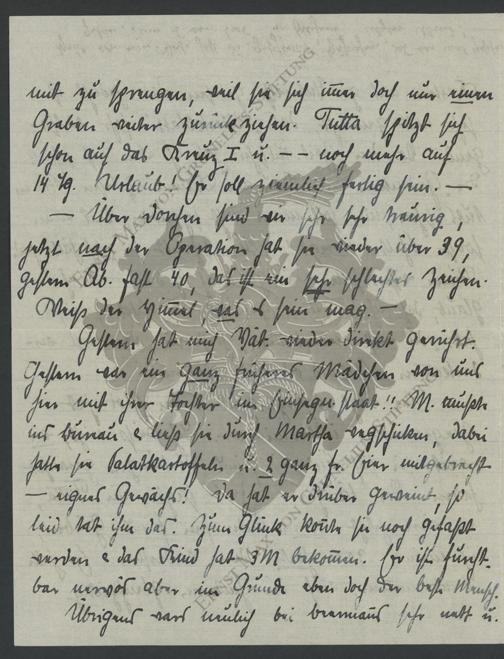 mit zu sprengen, weil sie sich immer doch nur einen
Graben weiter zurückziehen. Tutta spitzt sich
schon auf das Kreuz I u. –– noch mehr auf
14 Tg. Urlaub. Er soll ziemlich fertig sein. —
— Über Dorchen sind wir sehr sehr traurig,
jetzt nach der Operation hat sie wieder über 39,
gestern Ab. fast 40, das ist ein sehr schlechtes Zeichen.
Weiß der Himmel, was es sein mag. —
Gestern hat mich Vat. wieder direkt gerührt.
Gestern war ein ganz früheres Mädchen von uns
hier mit ihrer Tochter im Einsegn. staat!! M. mußte
ins Bureau & ließ sie durch Martha wegschicken, dabei
hatte sie Salatkartoffeln u. 2 ganz fr. Eier mitgebracht
— eignes Gewächs! Da hat er drüber geweint, so
leid tat ihm das. Zum Glück konnte sie noch gefaßt
werden & das Kind hat 3M bekommen. Er ist furcht-
bar nervös aber im Grunde eben doch der beste Mensch.
Übrigens wars neulich bei sehr nett u.
ERNST MAX VON GRUNELIUS-STIFTUNG